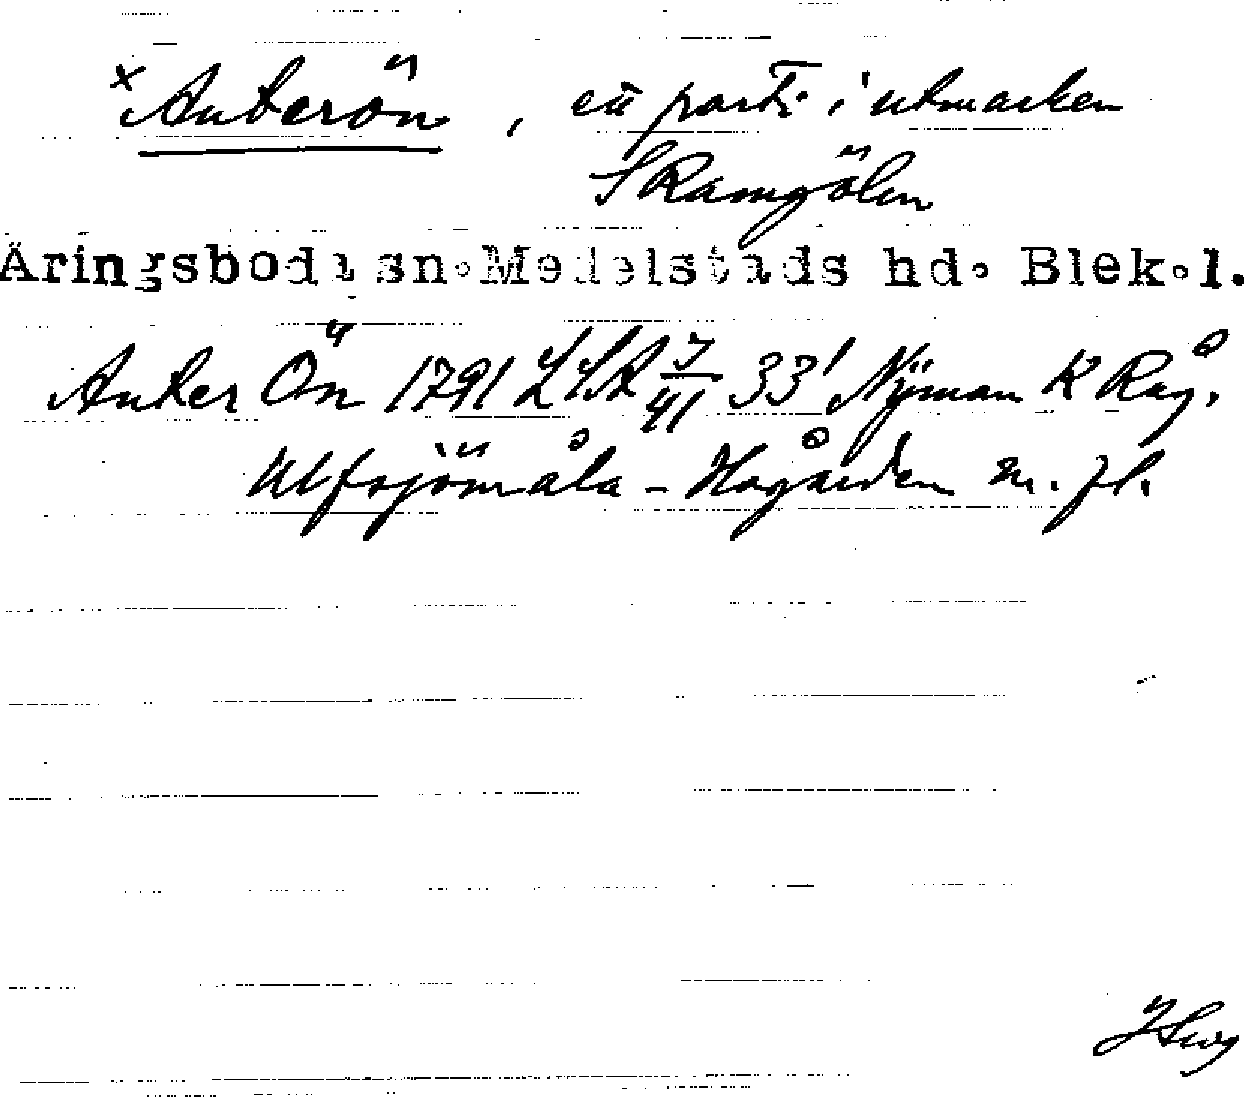 × Ankerön, ett parti i utmarken
Skramgölen
Äringsboda sn. Medelstads hd. Blek. l.
Anker Ön 1791 LSA 33' Nyman K Räg.
Ulfsjömåla - Hagården m. fl.